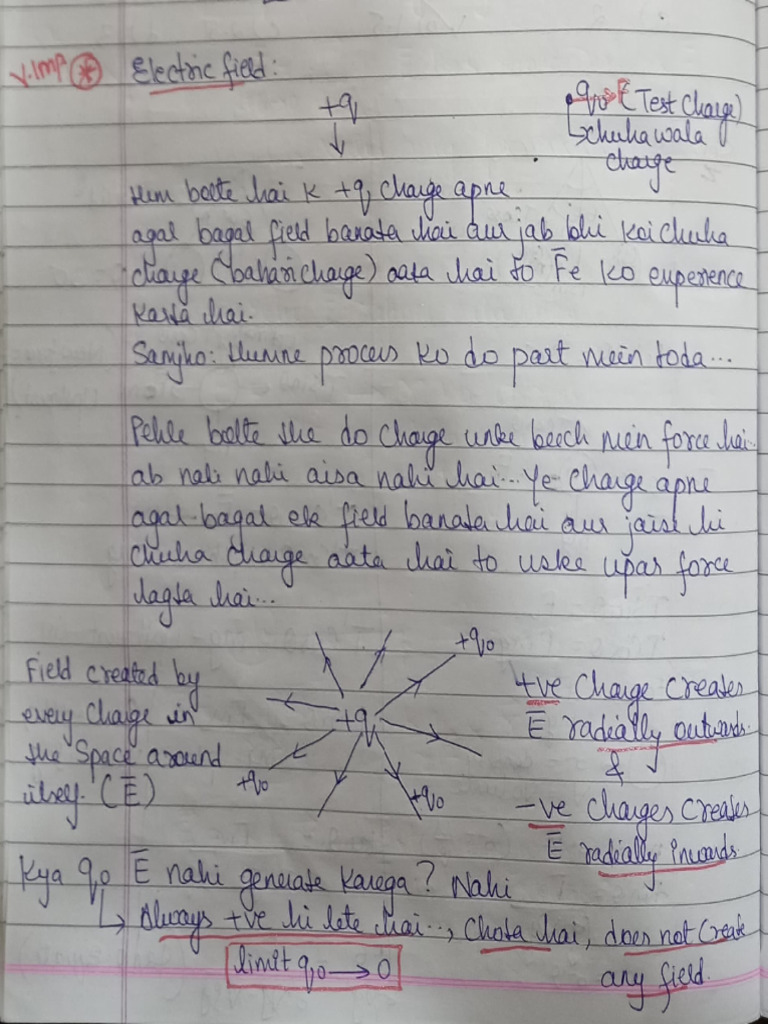 V.Imp * Electric field:
+q
q₀ → F (Test Charge)
↳ chuha wala
charge
Hum bolte hai K +q charge apne
agal bagal field banata hai aur jab bhi koi chuha
charge (bahari charge) aata hai to F̄e ko experience
karta hai.
Samjho: Humne process ko do part mein toda...
Pehle bolte the do charge unke beech mein force hai
ab nahi nahi aisa nahi hai... Ye charge apne
agal-bagal ek field banata hai aur jaise hi
chuha charge aata hai to uske upar force
lagta hai...
+q₀
Field created by
every charge in
the space around
itself. (Ē)
+q
+q₀
+q₀
+ve charge creates
Ē radially outwards
&
-ve charges creates
Ē radially inwards
Kya q₀ Ē nahi generate karega? Nahi
↳ Always +ve hi lete hai.., Chota hai, does not create
any field.
limit q₀ → 0